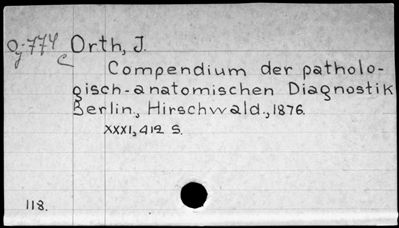 Og-774 Orth, J.
c
Compendium der patholo-
gisch-anatomischen Diagnostik
Berlin, Hirschwald., 1876.
XXXI, 412 S.
118.